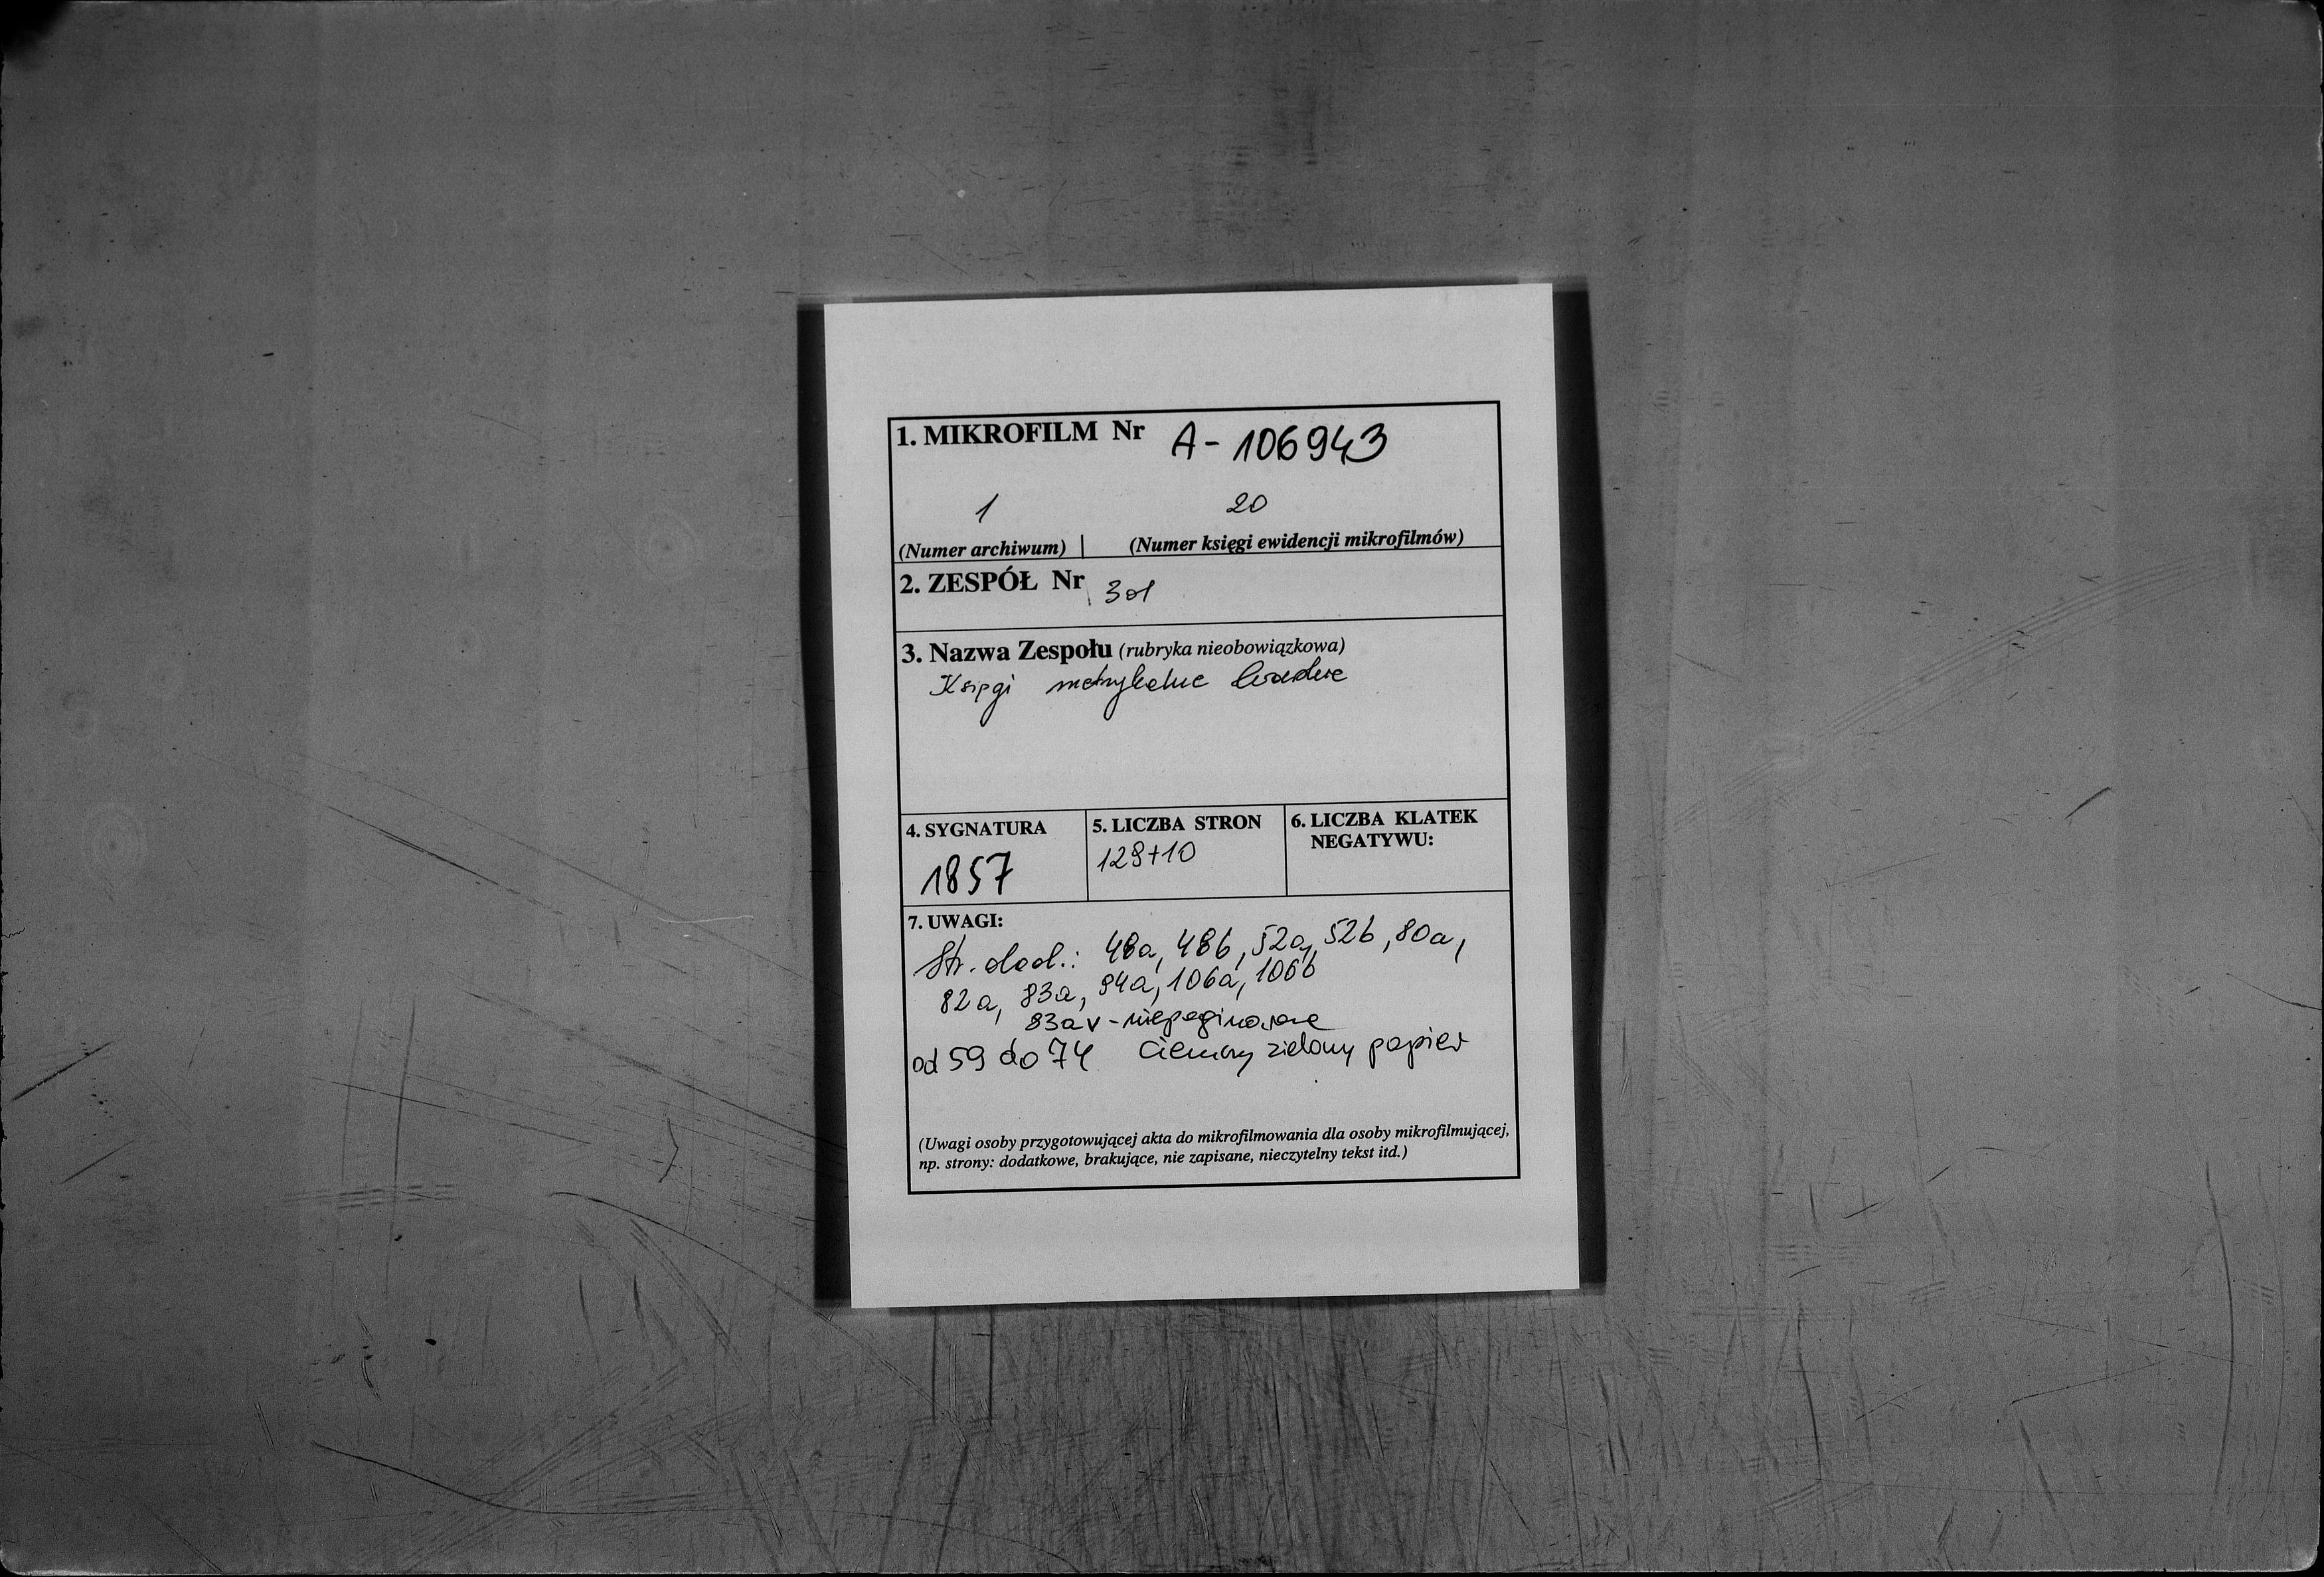 1. MIKROFILM Nr A-106943
1 20
(Numer archiwum) (Numer księgi ewidencji mikrofilmów)
2. ZESPÓŁ Nr 301
3. Nazwa Zespołu (rubryka nieobowiązkowa)
Księgi metrykalne
4. SYGNATURA 5. LICZBA STRON 6. LICZBA KLATEK
NEGATYWU:
1857 128+10
7. UWAGI:
Str. dod.: 48a, 48b, 52a, 52b, 80a,
82a, 83a, 94a, 106a, 106b
83av - niepaginowane
od 59 do 74 ciemny zielony papier
(Uwagi osoby przygotowującej akta do mikrofilmowania dla osoby mikrofilmującej,
np. strony: dodatkowe, brakujące, nie zapisane, nieczytelny tekst itd.)